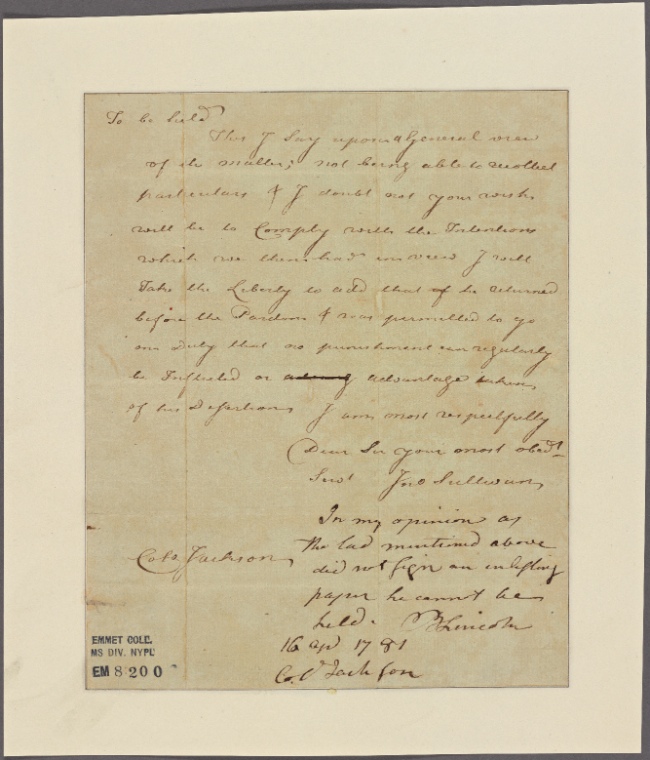 To be held
This I Say upon a General view
of the matter; not being able to recollect
particulars & I doubt not your wish
will be to Comply with the Intentions
which we then had in view I will
Take the Liberty to add that if he returned
before the Pardon & was permitted to go
on Duty that no punishment can regularly
be Inflicted or advantage taken
of his Desertion I am most respectfully
Dear Sir your most obedt
Servt Jno Sullivan
In my opinion as
the lad mentioned above
did not sign an inlisting
paper he cannot be
held. B Lincoln
Colo Jackson
16 apl 1781
Col Jackson
EMMET COLL.
MS DIV. NYPL
EM 8200